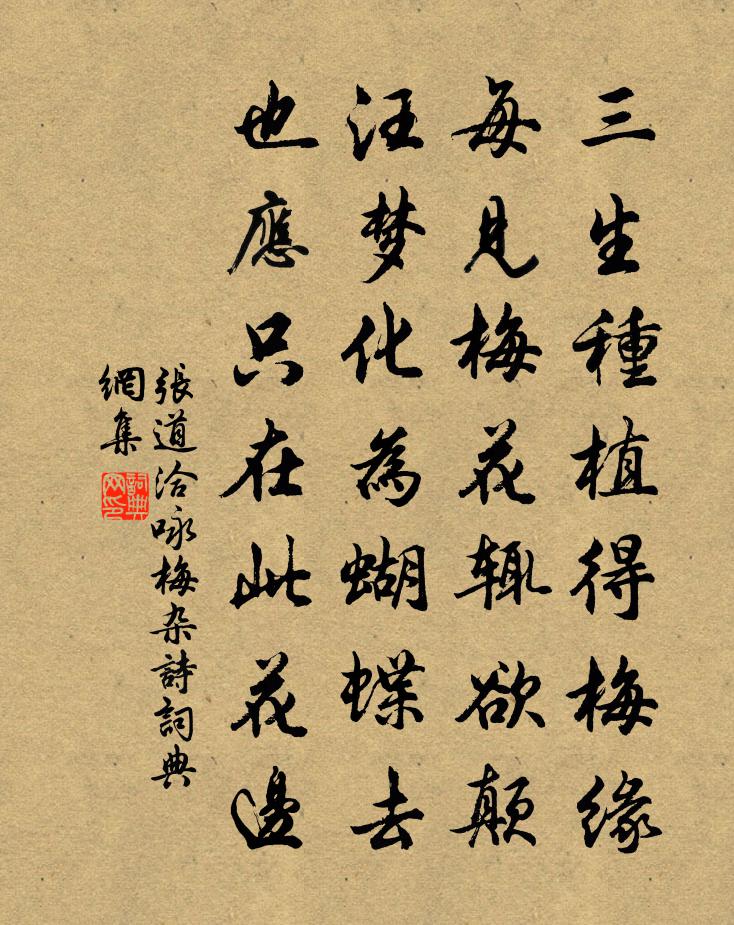 三生種植得梅緣
每見梅花輒欲顛
汪梦化為蝴蝶去
也應只在此花邊
張道洽咏梅杂詩詞典
網集
詞典
网印